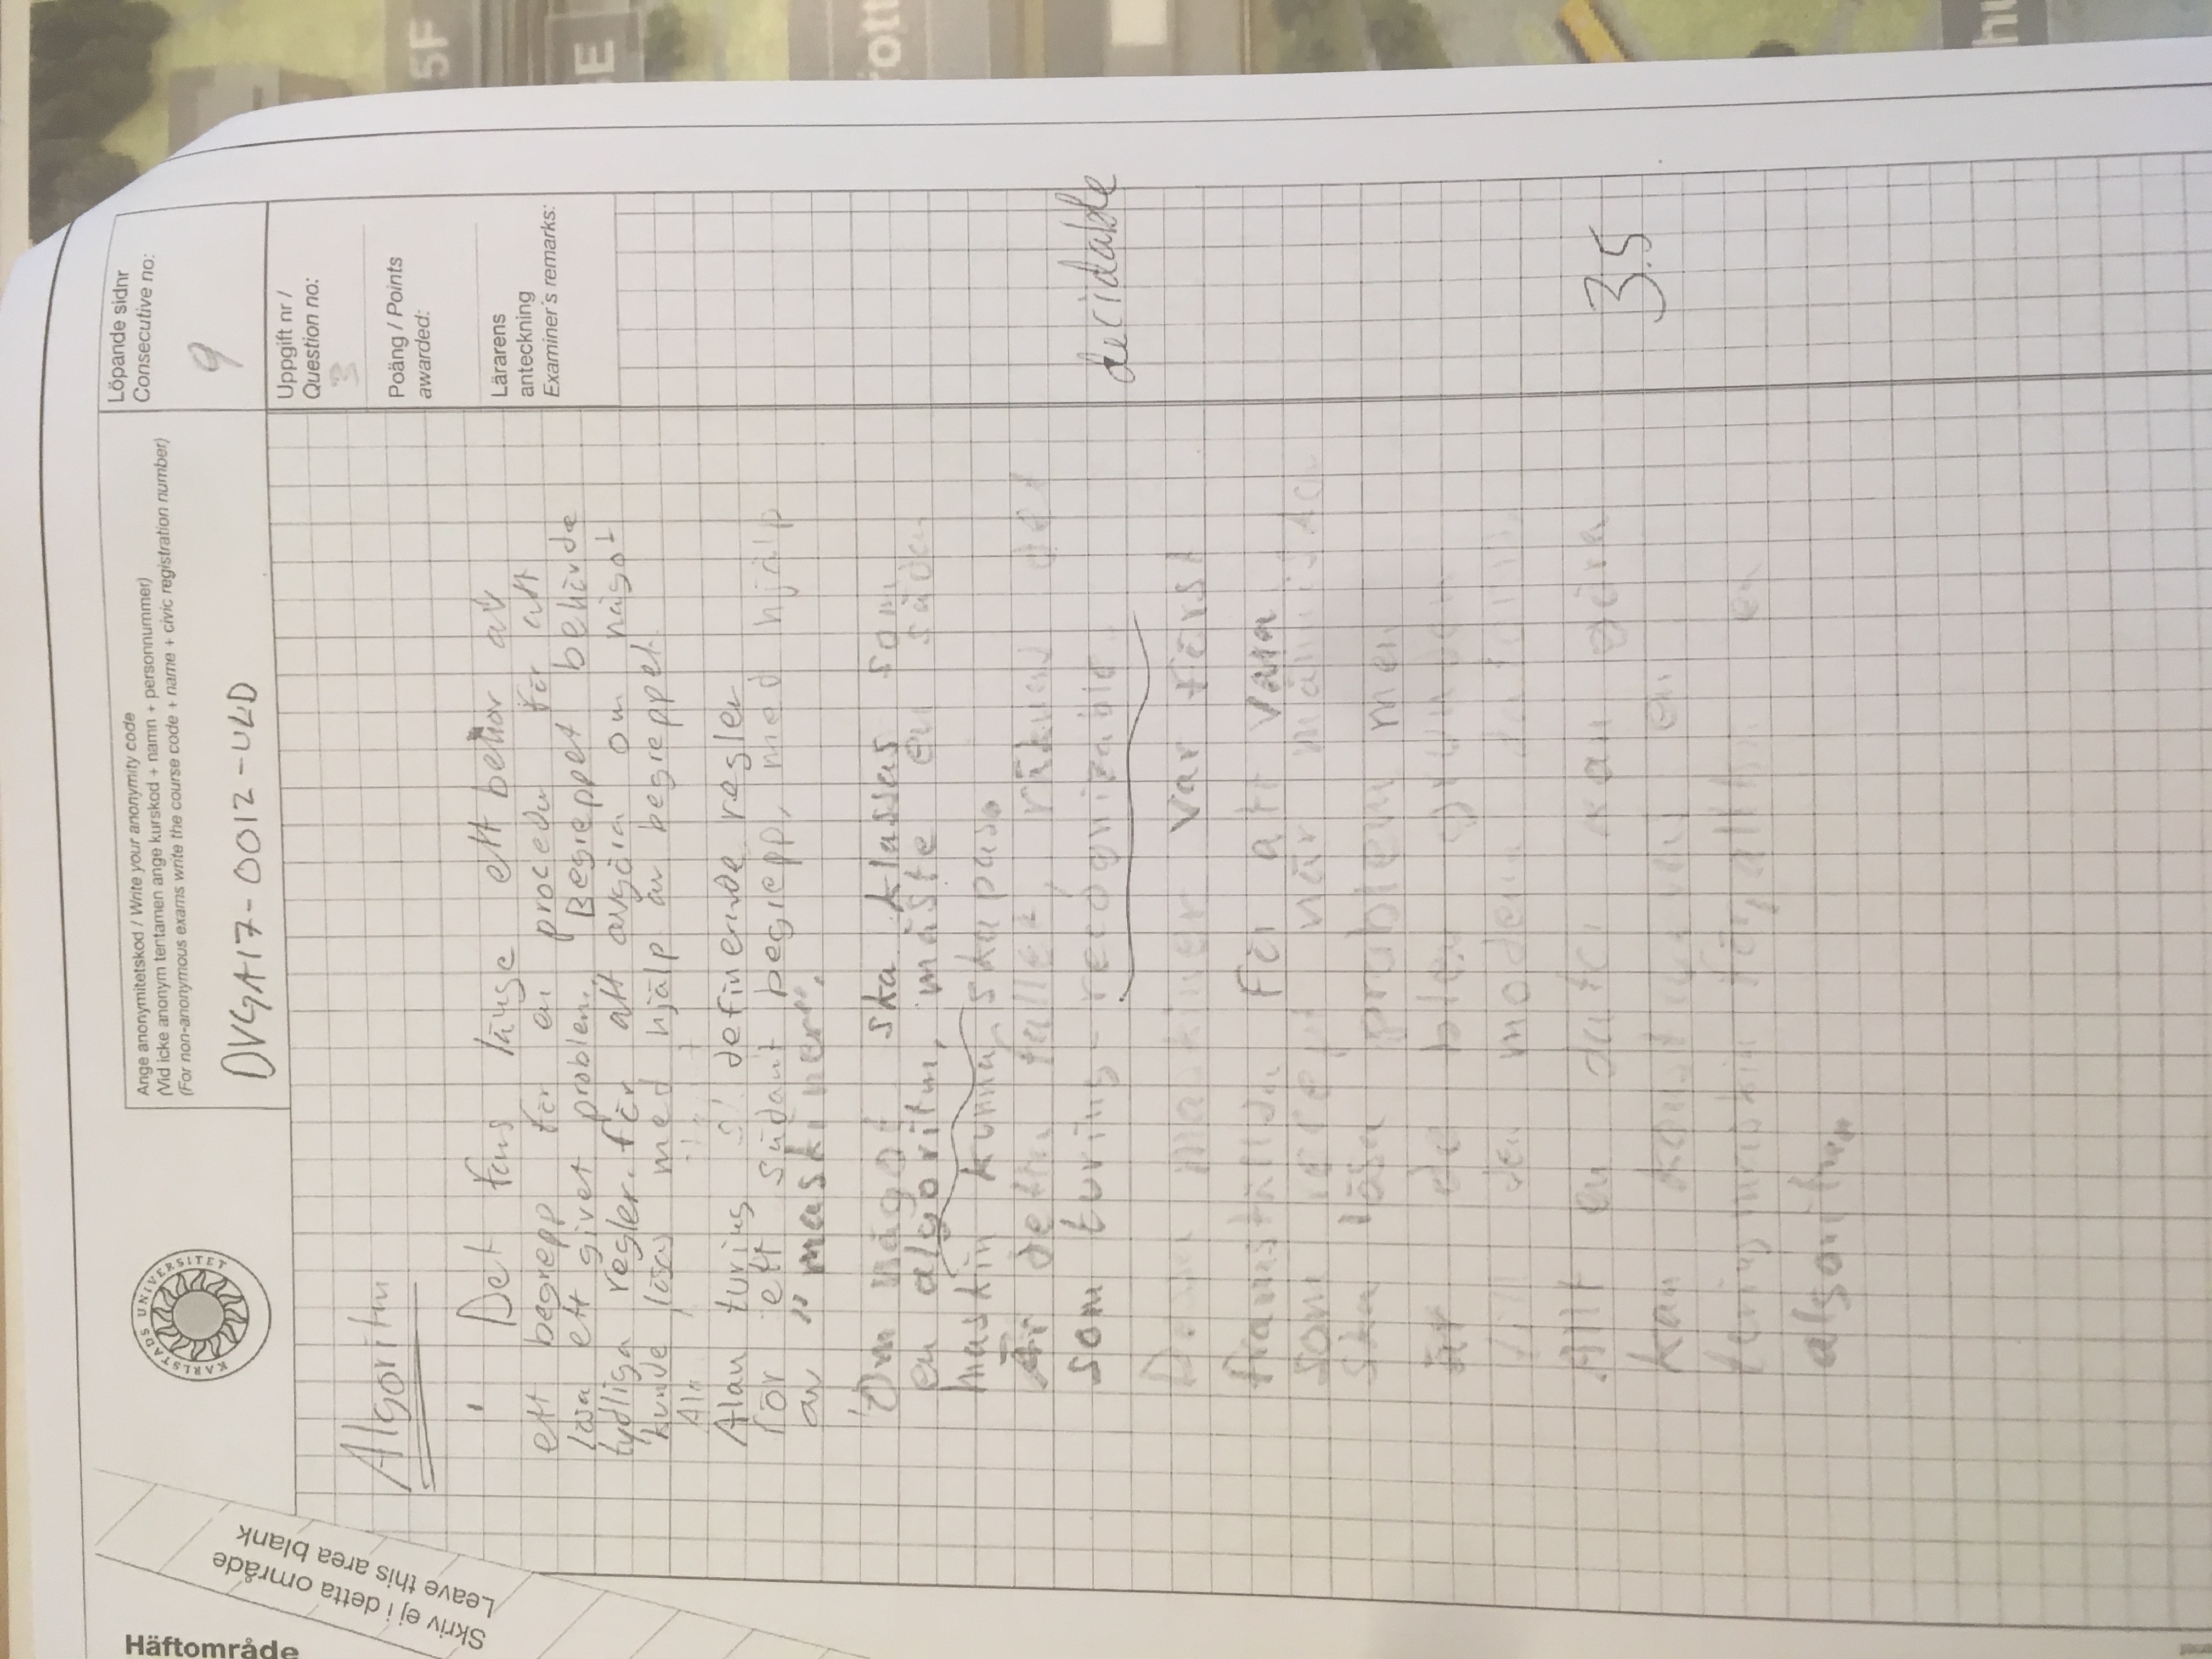 Häftområde
Skriv ej i detta område
Leave this area blank
KARLSTADS UNIVERSITET
Ange anonymitetskod / Write your anonymity code
(Vid icke anonym tentamen ange kurskod + namn + personnummer)
(For non-anonymous exams write the course code + name + civic registration number)
DVGA17-0012-ULD
Löpande sidnr
Consecutive no:
9
Uppgift nr /
Question no:
3
Poäng / Points
awarded:
Lärarens
anteckning
Examiner's remarks:
Algoritm
Det fans länge ett behov av
ett begrepp för en procedur för att
lösa ett givet problem. Begreppet behövde
tydliga regler för att avgöra om något
kunde lösas med hjälp av begreppet.
Alan turing definerade regler
för ett sådant begrepp, med hjälp
av "maskiner".
Om något ska klassas som
en algoritm, måste en sådan
maskin kunna skapas.
Är detta fallet, räknas det
som turing-recognizable.
decidable
Dessa maskiner var först
framställda för att vara
som recept när människor
ska lösa problem men
är de blev grunden
till den moderna datorn.
Allt en dator kan göra
kan konstrueras en
turingmaskin för, alltså en
algoritm
3.5
5F